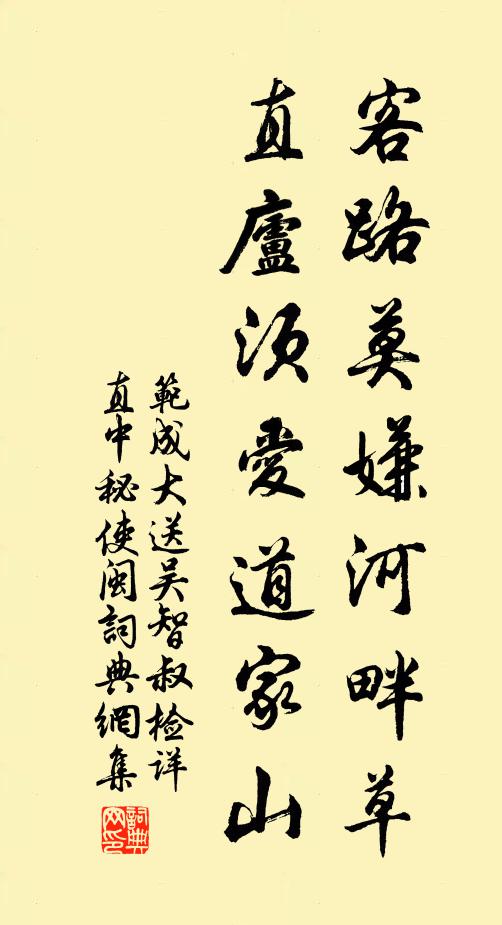 客路莫嫌河畔草
直廬須愛道家山
範成大送吴智叔检詳
直中秘使闽詞典網集
詞典網印